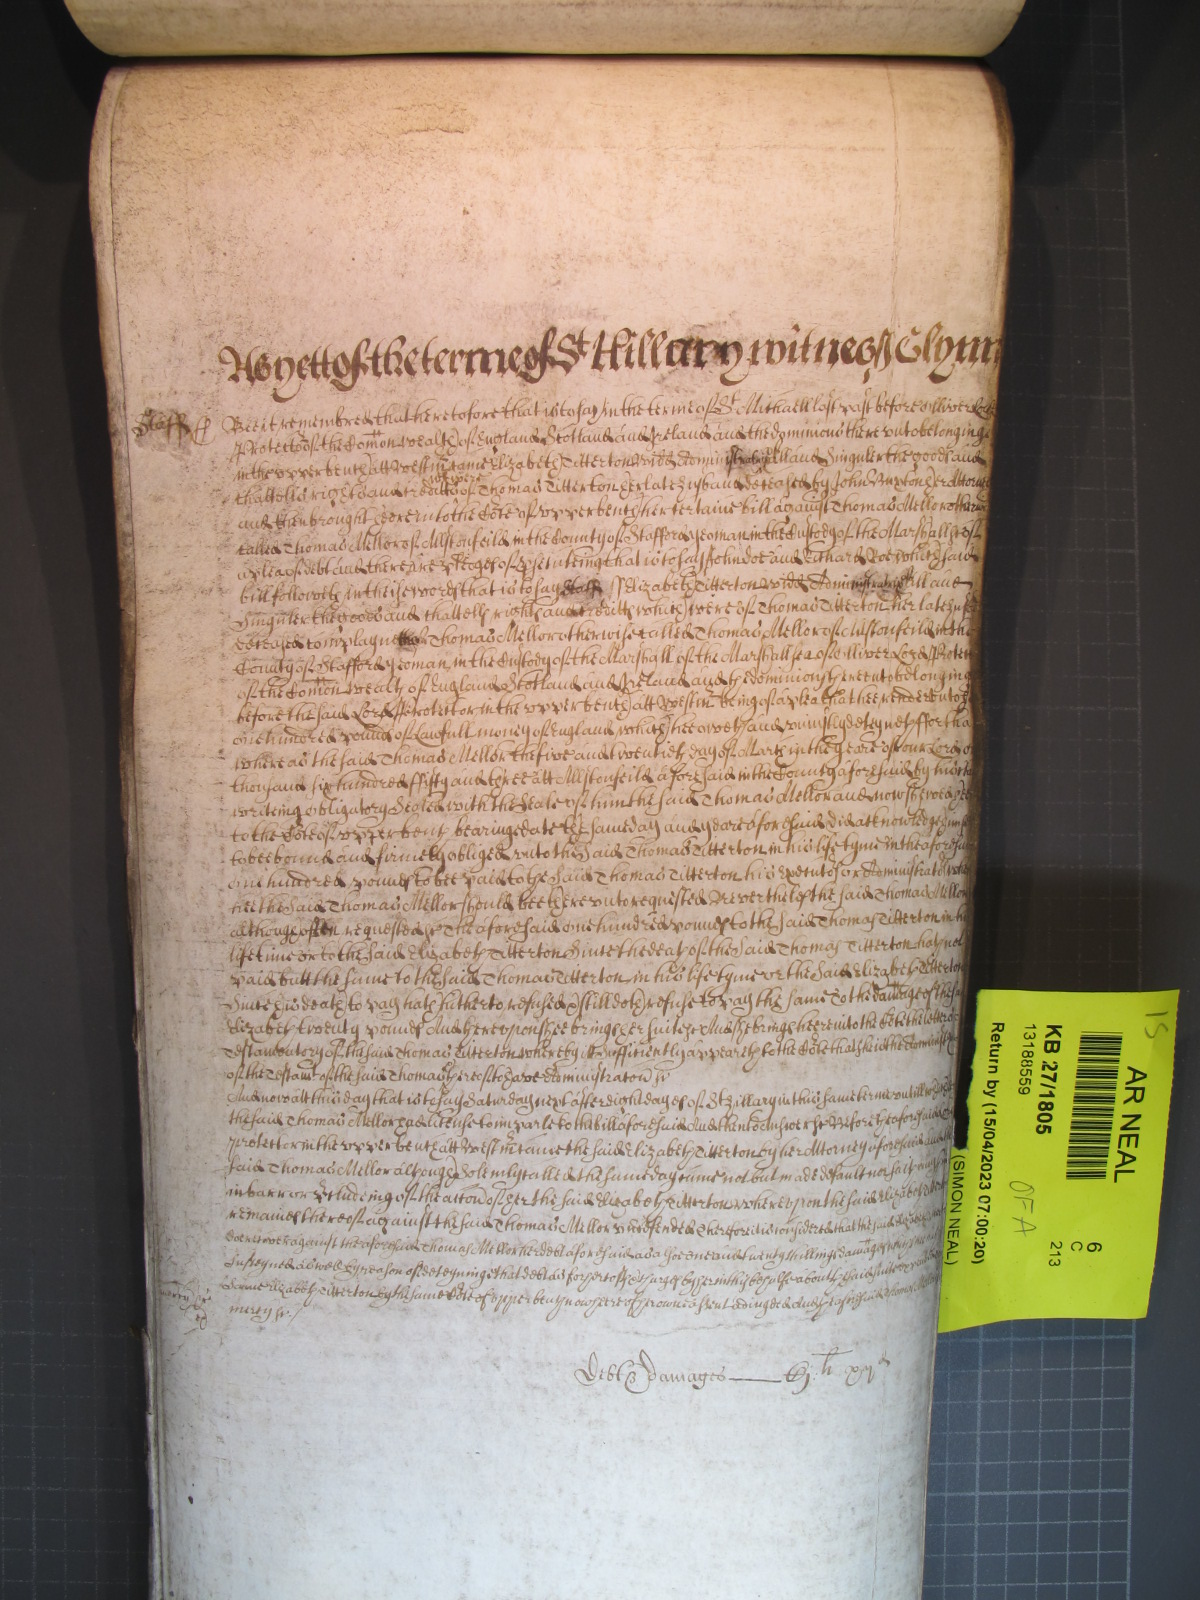 As yett of the terme of St Hillary witnes J Glynn
Staff ss Bee it remembred that heretofore that is to say in the terme of St Michaell last past before Oliver Lord
Protector of the Comon wealth of England Scotland and Ireland and the dominions thereunto belonginge
in the upper bench att Westmr came Elizabeth Titterton widd Administratrix of all and Singuler the goods and
chattells rights and creditts which were of Thomas Titterton her late husband deceased by John her Attorney
and then brought here into the Cort of upper bench her certaine bill against Thomas Mellor otherwise
called Thomas Mellor of Allstonfeild in the County of Stafford yeoman in the Custody of the Marshall &c of
a plea of debt and there are pledges of prosecuteing that is to say John doe and Richard Roe which said
bill followeth in these words that is to say Staff ss Elizabeth Titterton widd Administratrix of all and
Singuler the goods and chattells rights and creditts which were of Thomas Titterton her late husband
deceased complayneth of Thomas Mellor otherwise called Thomas Mellor of Allstonfeild in the
County of Stafford yeoman in the Custody of the Marshall of the Marshallsea of Oliver Lord Protector
of the Comon wealth of England Scotland and Ireland and the dominions thereunto belonging
before the said Lord Protector in the upper bench att Westmr being of a plea that hee render unto her
one hundred pounds of Lawfull money of England which hee oweth and uniustly deteyneth for that
whereas the said Thomas Mellor the five and twentieth day of March in the yeare of our Lord one
thousand six hundred fifty and three att Allstonfeild aforesaid in the County aforesaid by his
writeing obligatory Sealed with the Seale of him the said Thomas Mellor and now shewed
to the Cort of upper bench beareinge date the same day and yeare aforesaid did acknowledge himselfe
to bee bound and firmely obliged unto the said Thomas Titterton in his life tyme in the aforesaid
one hundred pounds to bee paid to the said Thomas Titterton his executors or Administrators when
hee the said Thomas Mellor should bee thereunto requested Neverthelesse the said Thomas Mellor
although often requested &c the aforesaid one hundred pounds to the said Thomas Titterton in his
life time or to the said Elizabeth Titterton Since the death of the said Thomas Titterton hath not
paid butt the same to the said Thomas Titterton in his life tyme or the said Elizabeth Titterton
Since his death to pay hath hitherto refused & still doth refuse to pay the same To the damage of the said
Elizabeth twenty pounds And thereupon shee brings her suite &c And she brings here into the Cort the letters
Testamentory of the said Thomas Titterton whereby itt sufficiently appeareth to the Cort that she is the Administratrix
of the Testamt of the said Thomas & thereof to have administration &c
And now att this day that is to say Saturday next after eight dayes of St Hillary in this same terme untill which day
the said Thomas Mellor had license to imparle to the bill aforesaid And then to Answer &c Before the aforesaid Lord
Protector in the upper bench att Westmr came the said Elizabeth Titterton by her Attorney aforesaid and the
said Thomas Mellor although solemly called the same day came not but made default nor saith any thing
in barr or precludeing of the action of her the said Elizabeth Titterton whereupon the said Elizabeth
remaines thereof against the said Thomas Mellor undefended Therefore it is considered that the said Elizabeth
doe recover against the aforesaid Thomas Mellor her debt aforesaid as also one and twenty shillings damages
Susteyned as well by reason of deteyninge that debt as for her costs & charges by her in this behalfe about her suite expended
Same Elizabeth Titterton by the same Cort of upper bench now here of her owne assent adiudged And the aforesaid Thomas Mellor in
mercy &c
mercy &c
Debt & damages
AR NEAL
KB 27/1805
13188559
Return by (15/04/2023 07:00:20)
(SIMON NEAL)
6
C
213
OFA
15